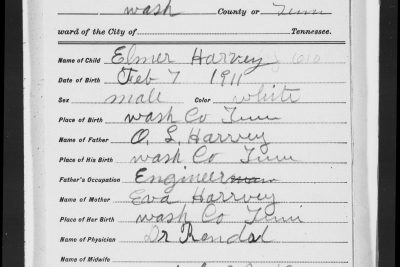 wash County or Tenn
ward of the City of Tennessee.
Name of Child Elmer Harvey
Date of Birth Feb 7 1911
Sex male Color white
Place of Birth wash Co Tenn
Name of Father O. L. Harvey
Place of His Birth wash Co Tenn
Father's Occupation Engineer
Name of Mother Eva Harrvey
Place of Her Birth wash Co Tenn
Name of Physician Dr Rendal
Name of Midwife